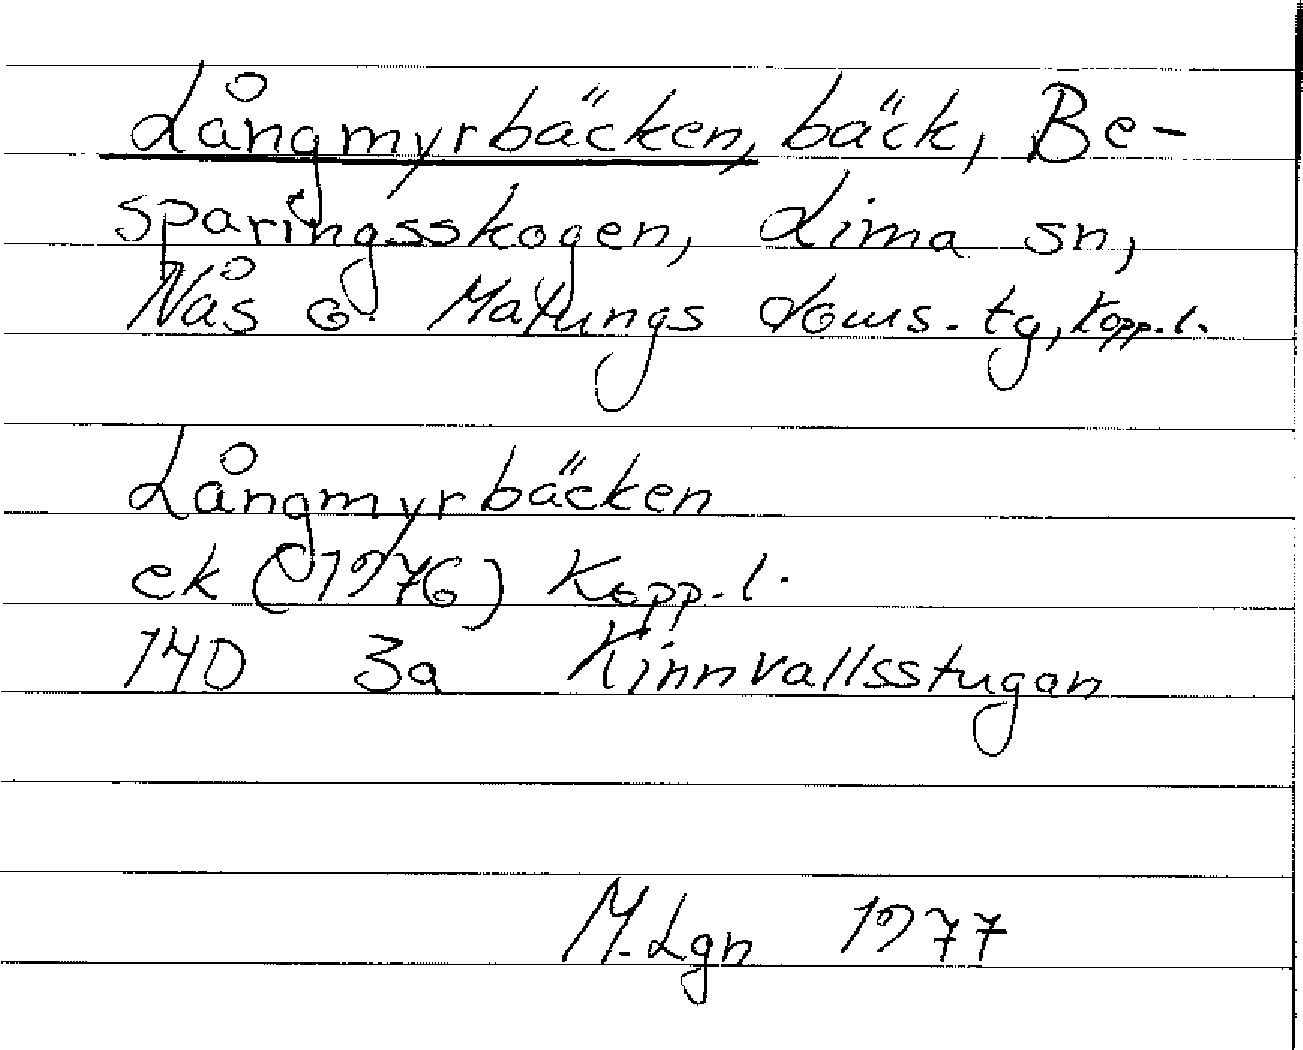 Långmyrbäcken, bäck, Be-
sparingsskogen, Lima sn,
Nås o. Malungs doms.tg, Kopp.l.
Långmyrbäcken
ek (1976) Kopp.l.
14D 3a Kinnvallsstugan
M.Lgn 1977